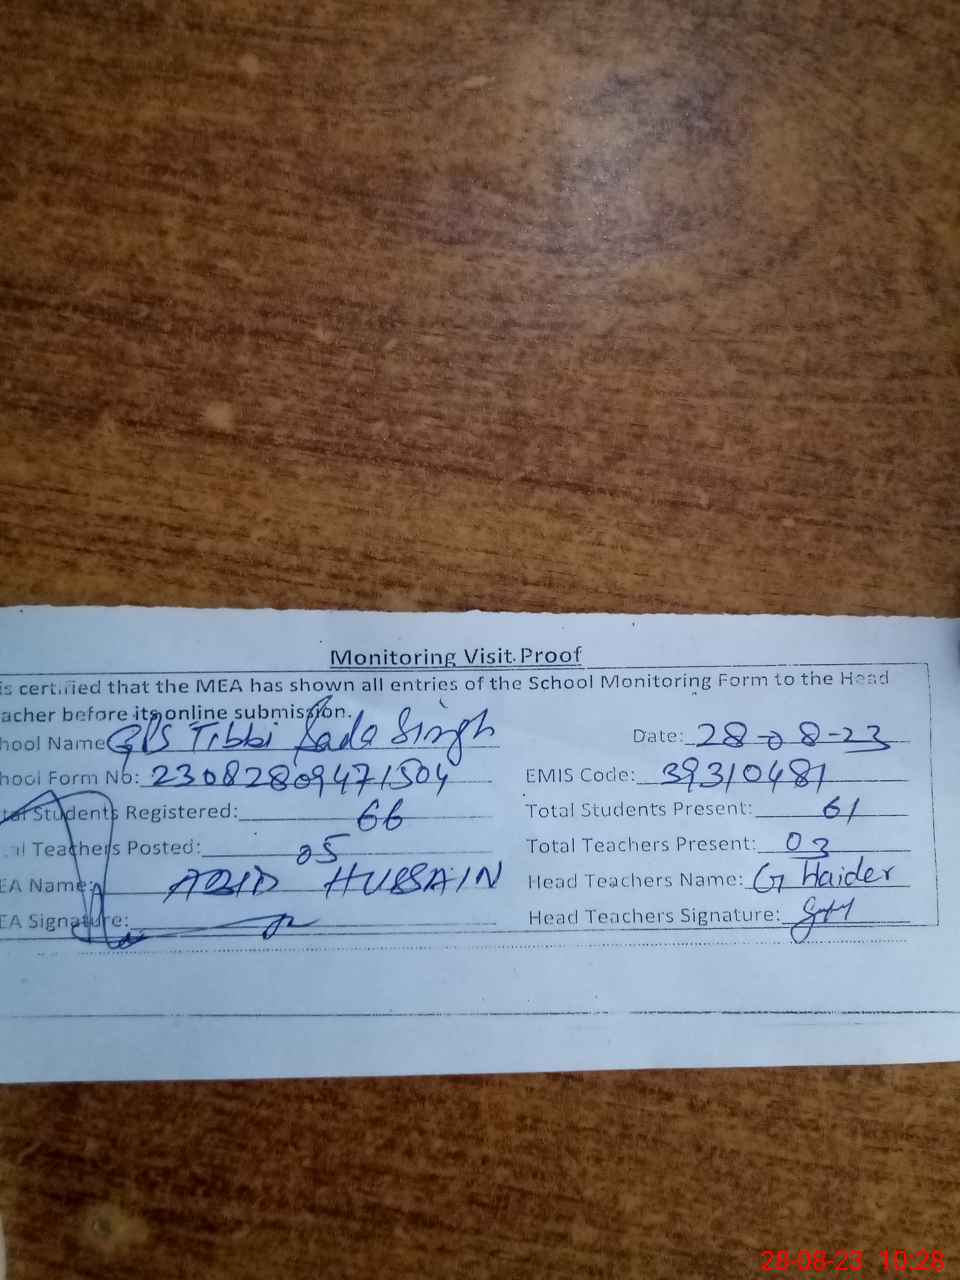 Monitoring Visit Proof
is certified that the MEA has shown all entries of the School Monitoring Form to the Head
acher before its online submission.
hool Name GPS Tibbi Singh Date: 28-08-23
hool Form No: 23082809471504 EMIS Code: 39310481
tal Students Registered: 66 Total Students Present: 61
al Teachers Posted: 05 Total Teachers Present: 03
EA Name: HUSSAIN Head Teachers Name: G Haider
EA Signature: Head Teachers Signature:
28-08-23 10:28